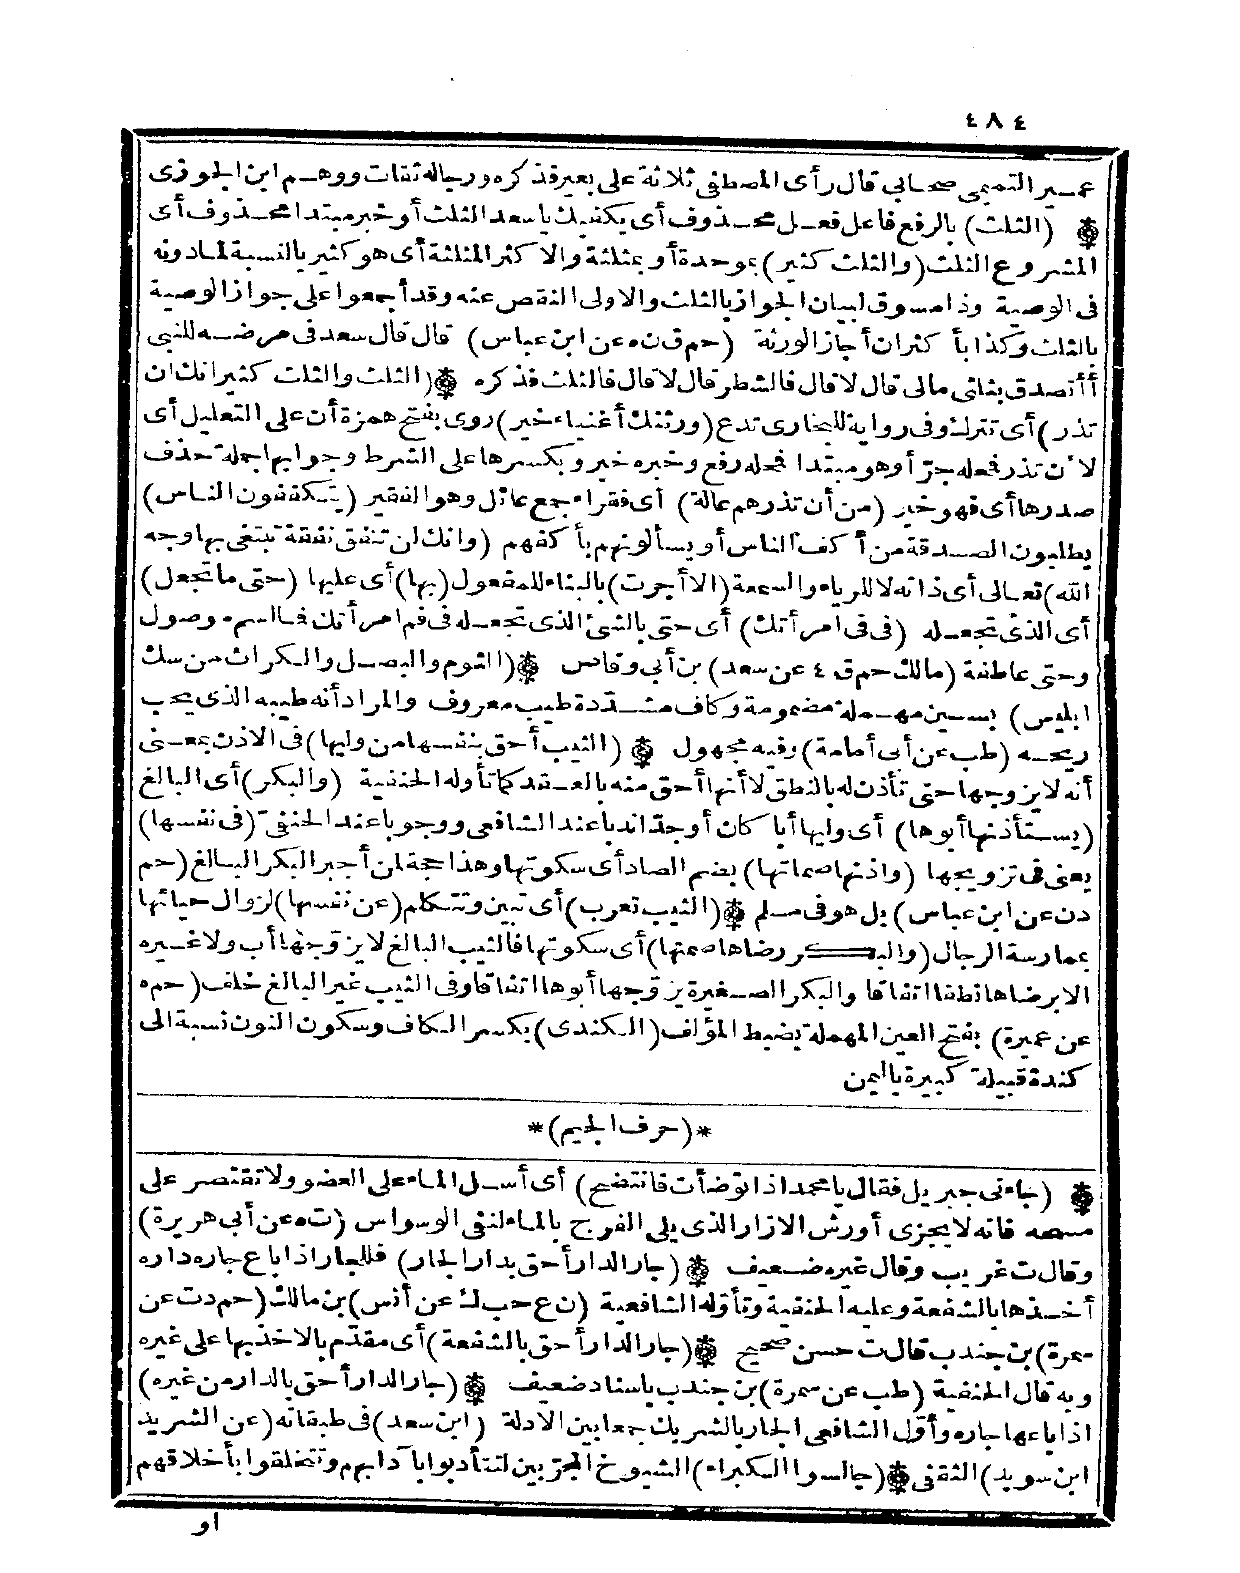 ٤٨٤
عمير التميمى صحابى قال رأى المصطفى ثلاثة على بعير فذكره ورجاله ثقات ووهم ابن الجوزى
(الثلث) بالرفع فاعل فعل محذوف أى يكفيك ياسعد الثلث أو خبر مبتدا محذوف أى
المشروع الثلث (والثلث كثير) بموحدة أو بمثلثة والاكثر المثلثة أى هو كثير بالنسبة لمادونه
فى الوصية وذا مسوق لبيان الجواز بالثلث والاولى النقص عنه وقد أجمعوا على جواز الوصية
بالثلث وكذا بأكثران أجاز الورثة (حم ق ن ه عن ابن عباس) قال قال سعد فى مرضه للنبى
أأتصدق بثلثى مالى قال لا قال فالشطر قال لا قال فالثلث فذكره (الثلث والثلث كثير انك ان
تذر) أى تترك وفى رواية للبخارى تدع (ورثتك أغنياء خير) روى بفتح همزة أن على التعليل أى
لأن تذر فعله جرّ أو هو مبتدا فمحله رفع وخبره خير وبكسرها على الشرط وجوابها جملة حذف
صدرها أى فهو خير (من أن تذرهم عالة) أى فقراء جمع عائل وهو الفقير (يتكففون الناس)
يطلبون الصدقة من أكف الناس أو يسألونهم بأكفهم (وانك لن تنفق نفقة تبتغى بها وجه
الله) تعالى أى ذاته لا للرياء والسمعة (الا أجرت) بالبناء للمفعول (بها) أى عليها (حتى ما تجعل)
أى الذى تجعله (فى فى امرأتك) أى حتى بالشئ الذى تجعله فى فم امرأتك فما اسم موصول
وحتى عاطفة (مالك حم ق ٤ عن سعد) بن أبى وقاص (الثوم والبصل والكراث من سك
ابليس) بسين مهملة مضمومة وكاف مشددة طيب معروف والمراد أنه طيبه الذى يحب
ريحه (طب عن أبى أمامة) وفيه مجهول (الثيب أحق بنفسها من وليها) فى الاذن بمعنى
أنه لا يزوجها حتى تأذن له بالنطق لا أنها أحق منه بالعقد كما تأوله الحنفية (والبكر) أى البالغ
(يستأذنها أبوها) أى وليها أبا كان أو جدّا ندبا عند الشافعى ووجوبا عند الحنفى (فى نفسها)
يعنى فى تزويجها (واذنها صماتها) بضم الصاد أى سكوتها وهذا حجة لمن أجبر البكر البالغ (حم
د ن عن ابن عباس) بل هو فى مسلم (الثيب تعرب) أى تبين وتتكلم (عن نفسها) لزوال حيائها
بممارسة الرجال (والبكر رضاها صمتها) أى سكوتها فالثيب البالغ لا يزوّجها أب ولا غيره
الا برضاها نطقا اتفاقا والبكر الصغيرة يزوّجها أبوها اتفاقا وفى الثيب غير البالغ خلف (حم ه
عن عميرة) بفتح العين المهملة بضبط المؤلف (الكندى) بكسر الكاف وسكون النون نسبة الى
كندة قبيلة كبيرة باليمن
*(حرف الجيم)*
(جاءنى جبريل فقال يا محمد اذا توضأت فانتضح) أى أسل الماء على العضو ولا تقتصر على
مسحه فانه لا يجزى أو رش الازار الذى يلى الفرج بالماء لنفى الوسواس (ت ه عن أبى هريرة)
وقال ت غريب وقال غيره ضعيف (جار الدار أحق بدار الجار) فللجار اذا باع جاره داره
أخذها بالشفعة وعليه الحنفية وتأوله الشافعية (ن ع حب ك عن أنس) بن مالك (حم د ت عن
سمرة) بن جندب قال ت حسن صحيح (جار الدار أحق بالشفعة) أى مقدّم بالاخذ بها على غيره
وبه قال الحنفية (طب عن سمرة) بن جندب باسناد ضعيف (جار الدار أحق بالدار من غيره)
اذا باعها جاره وأوّل الشافعى الجار بالشريك جمعا بين الادلة (ابن سعد) فى طبقاته (عن الشريد
ابن سويد) الثقفى (جالسوا الكبراء) الشيوخ المجرّبين لتتأدبوا بآدابهم وتتخلقوا بأخلاقهم
او